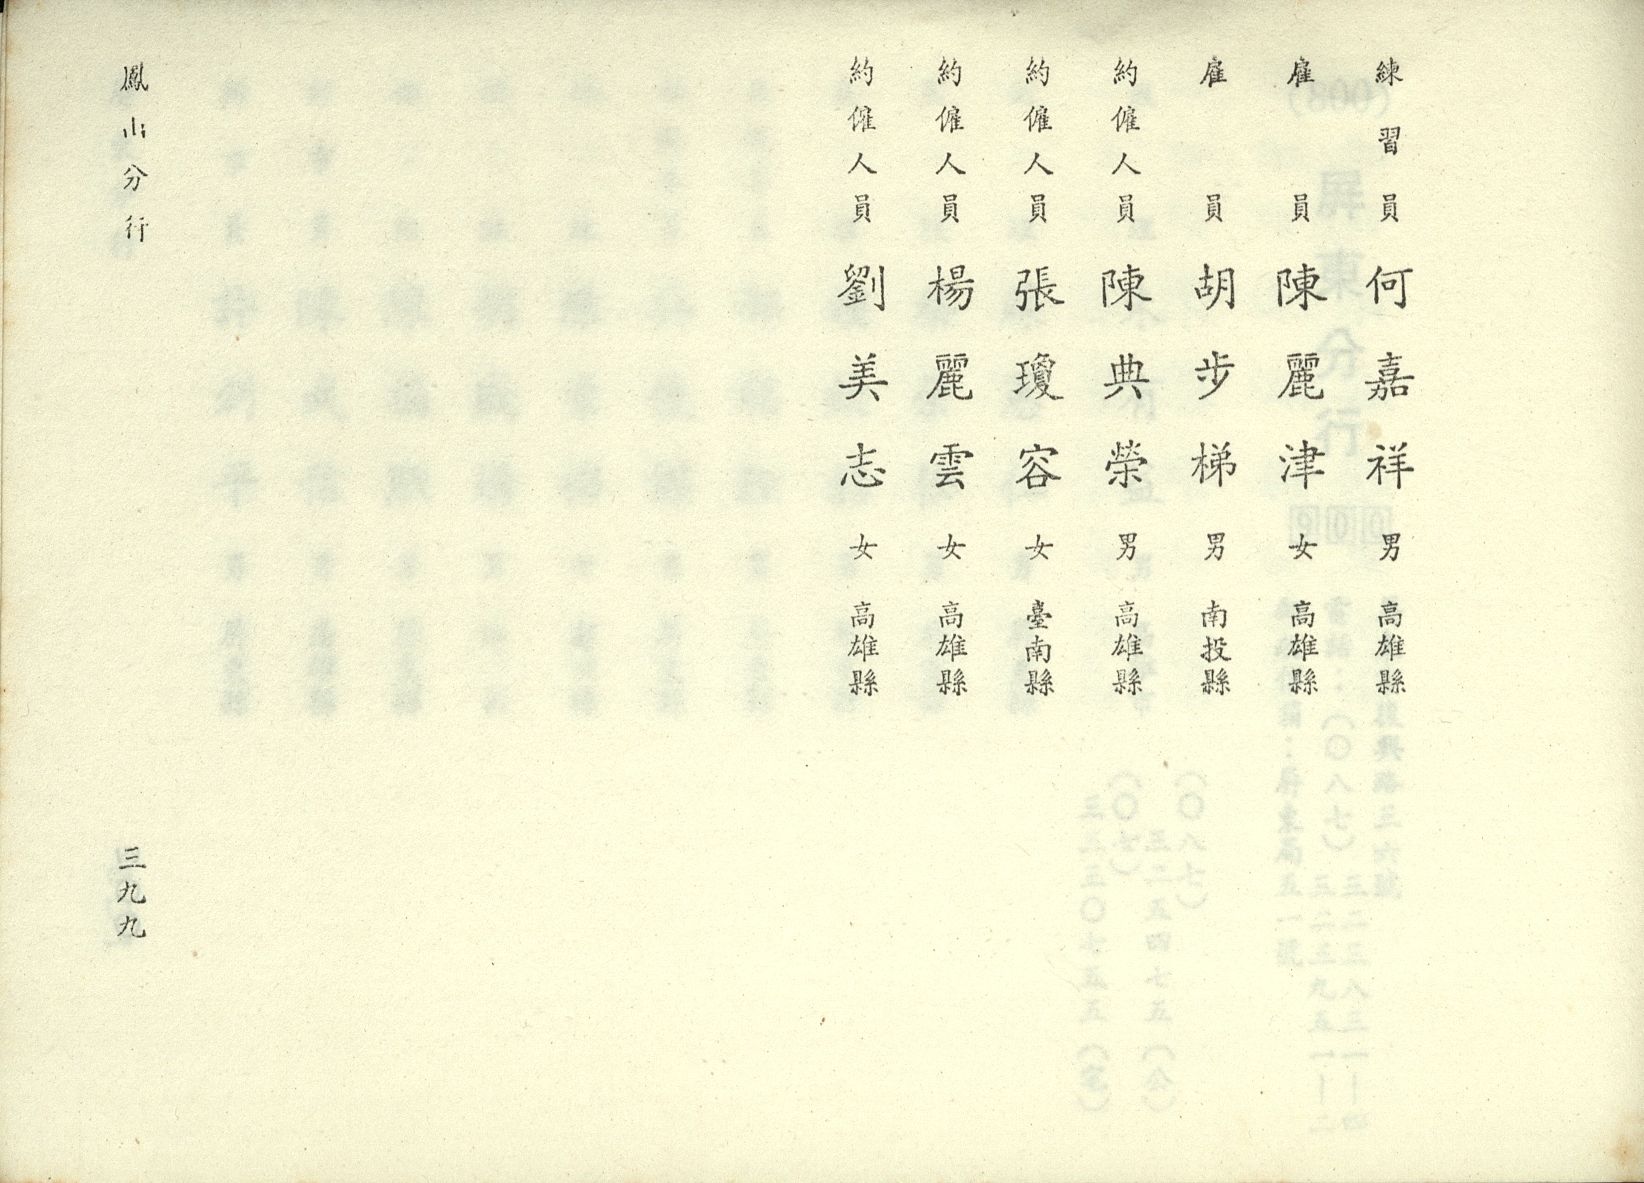 練習員 何嘉祥 男 高雄縣
雇員 陳麗津 女 高雄縣
雇員 胡步梯 男 南投縣
約僱人員 陳典榮 男 高雄縣
約僱人員 張瓊容 女 臺南縣
約僱人員 楊麗雲 女 高雄縣
約僱人員 劉美志 女 高雄縣
鳳山分行 三九九